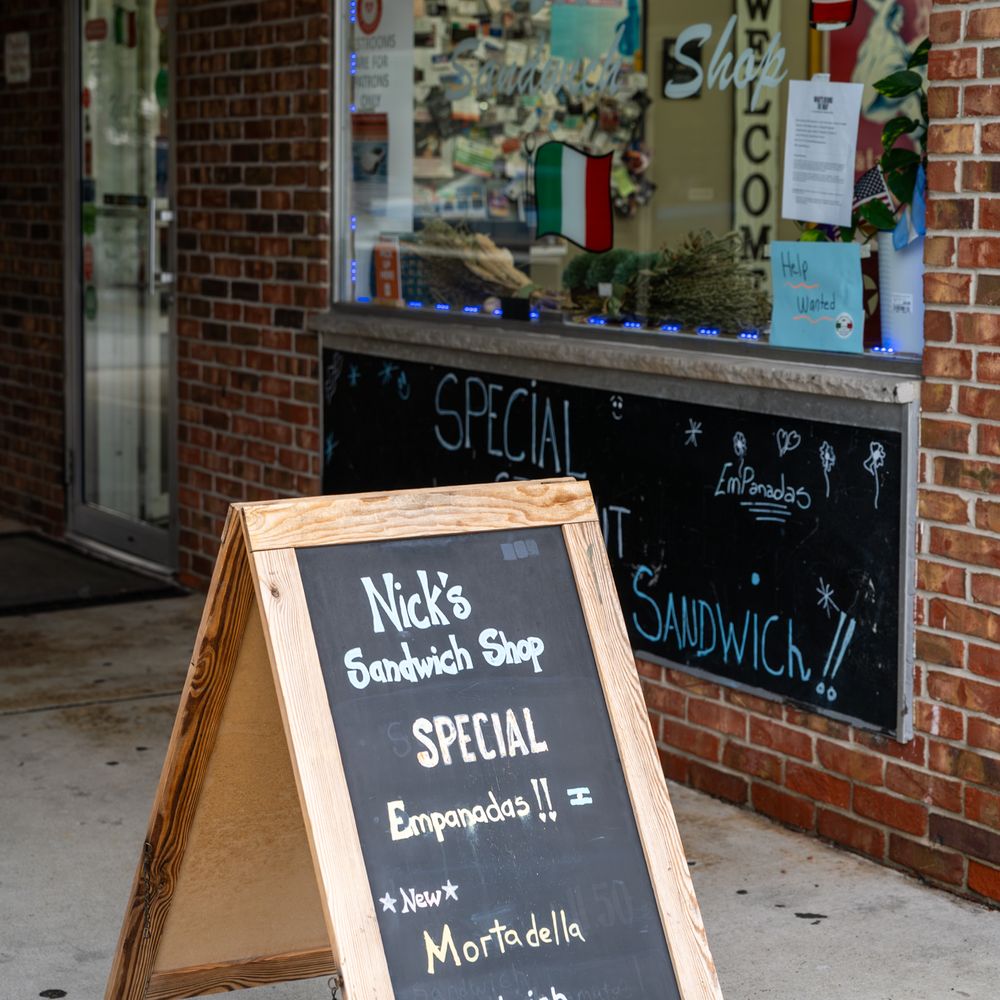 RESTROOMS
ARE FOR
PATRONS
ONLY
Sandwich Shop
WELCOME
Help
Wanted
SPECIAL
EmPanadas
SANDWICh!!
Nick's
Sandwich Shop
SPECIAL
Empanadas!!
★New★
Mortadella